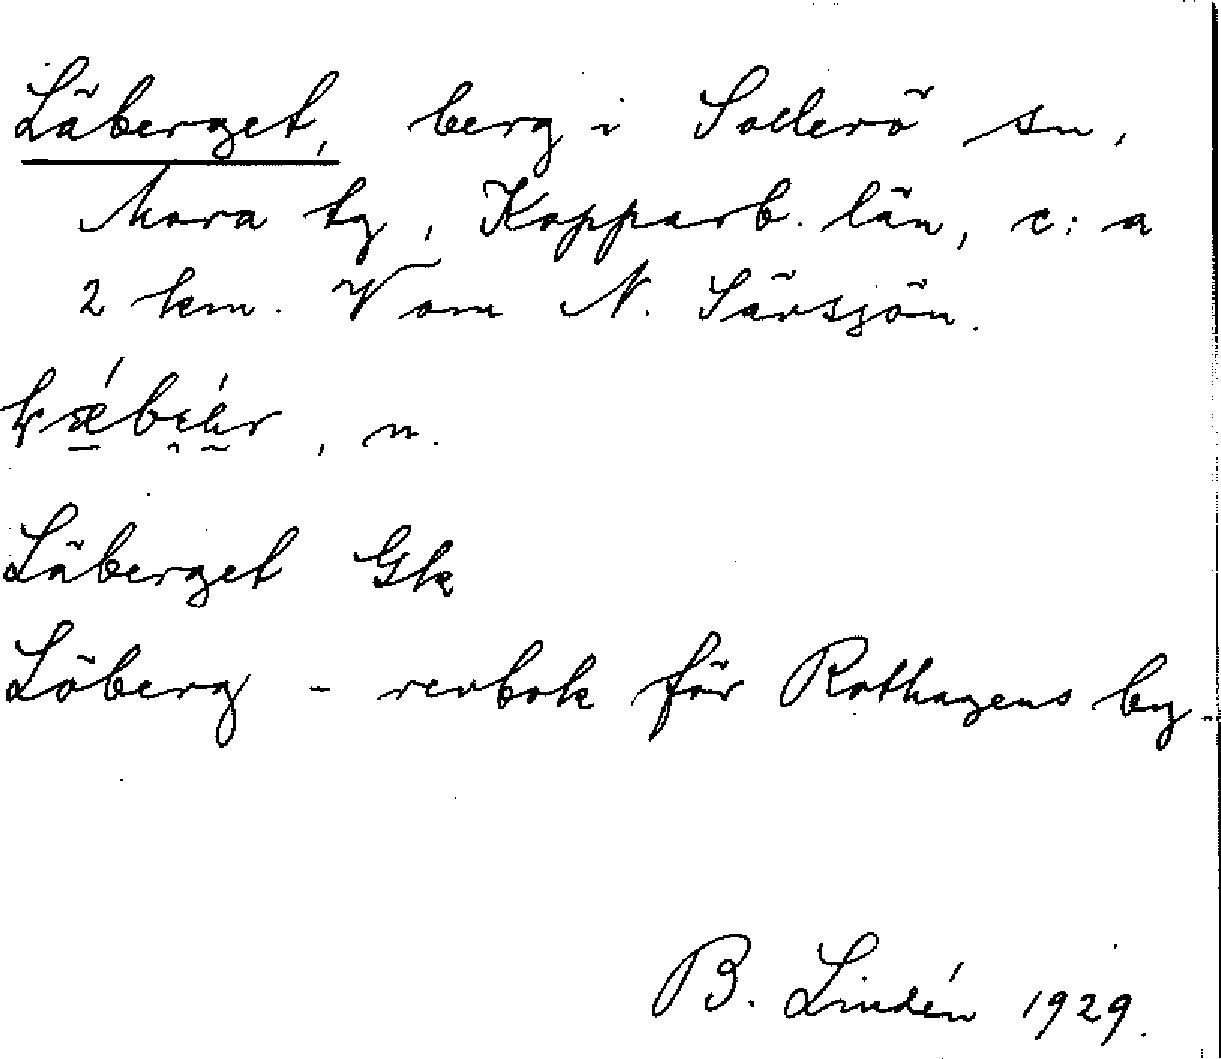 Läberget, berg i Sollerö sn,
Mora tg, Kopparb. län, c:a
2 km. V om N. Särsjön.
, n.
Läberget Gk
Löberg - revbok för Rothagens by.
B. Lindén 1929.